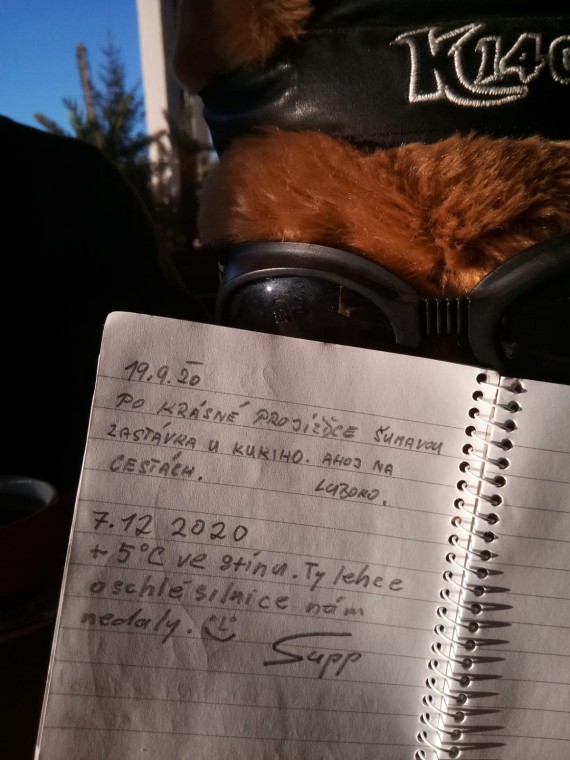 K14
19.9.20
PO KRÁSNÉ PROJÍŽĎCE ŠUMAVOU
ZASTÁVKA U KUKIHO. AHOJ NA
CESTÁCH.
LUBOKO.
7.12 2020
+ 5°C ve stínu. Ty lehce
oschlé silnice nám
nedaly.
Supp